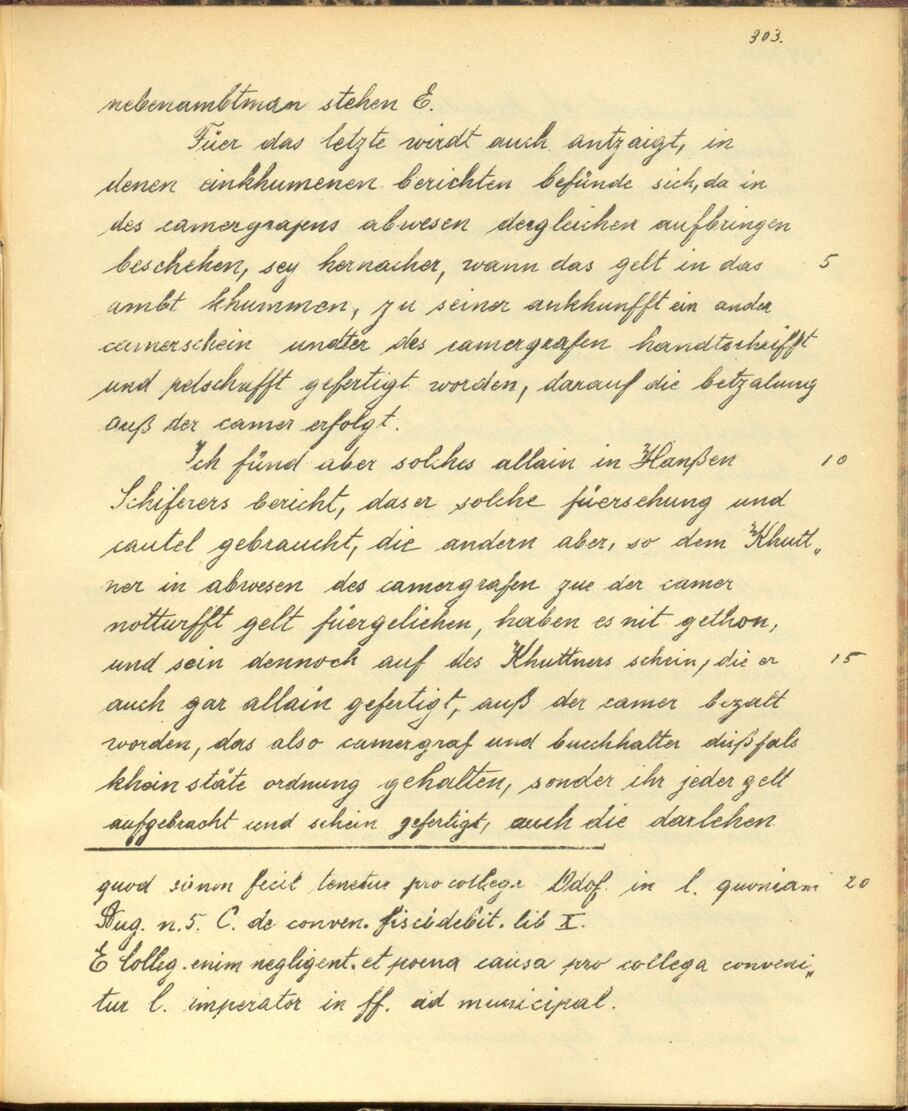 303.
nebenambtman stehen E.
Füer das letzte wirdt auch antzaigt, in
denen einkhumenen berichten befünde sich, da in
des camergrafens abwesen dergleichen aufbringen
beschehen, sey hernacher, wann das gelt in das 5
ambt khummen, zu seiner ankhunfft ein ander
camerschein undter des camergrafen handtschrifft
und petschafft gefertigt worden, darauf die betzalung
auß der camer erfolgt.
Ich fünd aber solches allain in Hanßen 10
Schiferers bericht, das er solche füersehung und
cautel gebraucht, die andern aber, so dem Khutt„
ner in abwesen des camergrafen zue der camer
notturfft gelt füergelichen, haben es nit gethon,
und sein dennoch auf des Khuttners schein, die er 15
auch gar allain gefertigt, auß der camer bezalt
worden, das also camergraf und buechhalter dißfals
khein stäte ordnung gehalten, sonder ihr jeder gelt
aufgebracht und schein gefertigt, auch die darlehen
quod si non fecit tenetur pro collega Odof. in l. quoniam 20
Aug. n. 5. C. de conven. fisci debit. lib X.
E Colleg. enim negligent. et poena causa pro collega conveni„
tur l. imperator in ff. ad municipal.